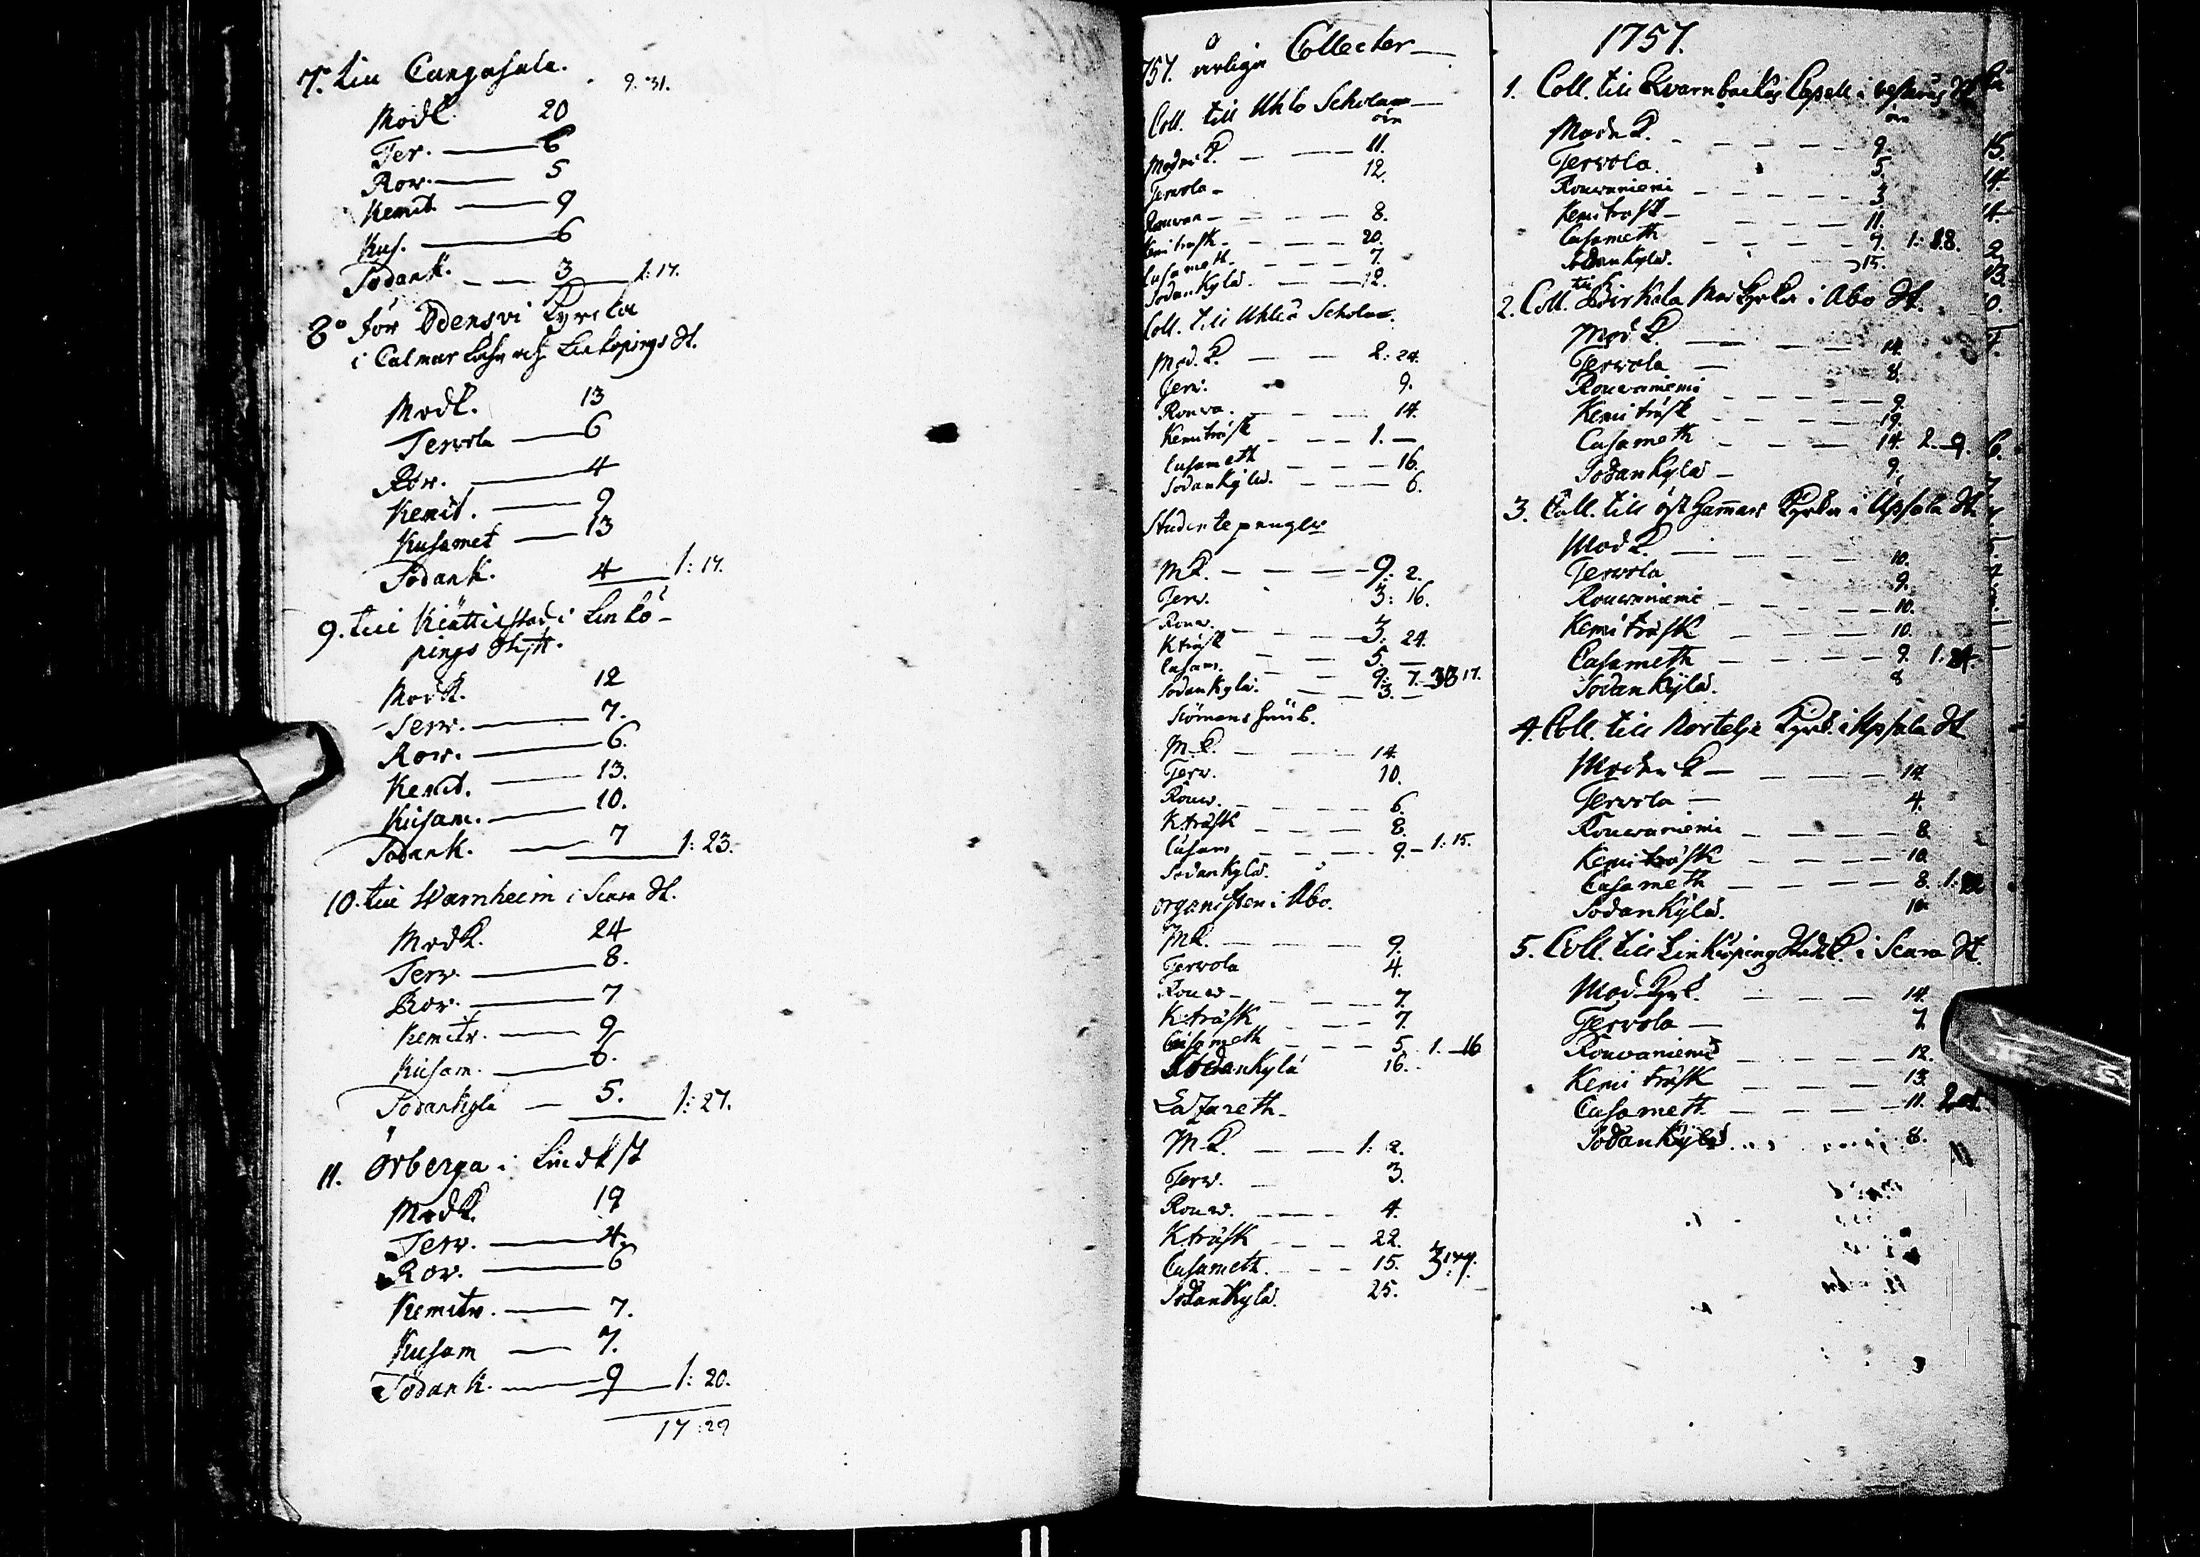 7. till Cangasala. 9:31.
ModK. 20
Ter. — 6
Row. — 5
Kemit — 9
Kus. — 6
Sodank. — 3 — 1:17.
8° för Odensvi Kyrcka
i Calmar Lähn och Linköpings St.
ModK. 13
Tervola — 6
Row. — 4
Kemit. — 9
Kusamet — 13
Sodank. 4 — 1:17.
9. till Kiättilstad i Linkö-
pings Stift.
ModK. 12
Terw. — 7.
Row. — 6.
Kemit. — 13.
Kusam. — 10.
Sodank. — 7 — 1:23.
10. till Warnheim i Scara St.
ModK. 24
Terw. — 8.
Row. — 7
Kemitr. — 9
Kusam. — 6.
Sodankyla — 5. — 1:27.
11. Örberga i
ModK. 19
Terw. — 4.
Row. — 6
Kemitr. — 7.
Kusam — 7.
Sodank. — 9 — 1:20.
17:29
757. årliga Collecter —
Coll. till Uhlo Scholan —
öre
ModerK. — 11.
Tervola — 12.
Rouvan — 8.
Kemiträsk — 20.
Cusameth — 7.
Sodankylä — 12.
Coll. till Uhleå Scholan.
Mod.K. — 2:24.
Terv. 9.
Rouva. — 14.
Kemiträsk — 1. —
Cusameth — 16.
Sodankylä. — 6.
Studentepengar
MK. — 9:2.
Terw. 3:16.
Rouw. — 3:24.
Kträsk — 5. —
Cusam. — 9:7. 33 17.
Sodankylä. — 3. —
M.K. — 14.
Terw. 10.
Rouw. — 6.
Kträsk — 8.
Cusam — 9. — 1:15.
Sodankylä.
organisten i Abo.
MK. — 9.
Tervola 4.
Rouw — 7.
Kträsk — 7.
Cusameth — 5. 1.—16
Sodankylä 16.
Lazareth —
M.K. — 1:2.
Terw. — 3.
Rouw. — 4.
Kträsk — 22.
Cusameth. — 15.
Sodankylä. 25.
1757.
1. Coll. till Qvarnbacka Capell i
öre
ModerK. — 9.
Tervola. 5.
Rouvaniemi — 3.
Kemiträsk — 11.
Cusameth — 9. 1:
Sodankylä. 15.
2. Coll. till Birkala Moderkyrka i Abo St.
Mod K. — 14.
Tervola — 8.
Rouvaniemi — 9.
Kemiträsk — 19.
Cusameth — 14. 2—9.
Sodankylä — 9.
3. Coll. till östhammars Kyrka i Upsala St.
Mod K. — 10.
Tervola 9.
Rouvaniemi — 10.
Kemiträsk — 10.
Cusameth — 9. 1:24.
Sodankylä. 8
4. Coll. till Nortelje Kyrk. i Upsala St
ModerK — 14.
Tervola — 4.
Rouvaniemi — 8.
Kemiträsk — 10.
Cusameth — 8. 1:
Sodankylä.
5. Coll. till Linköping i Scara St.
Mod Kyrk. — 14.
Tervola — 7.
Rouvaniemi — 12.
Kemiträsk — 13.
Cusameth — 11.
Sodankylä. 8.